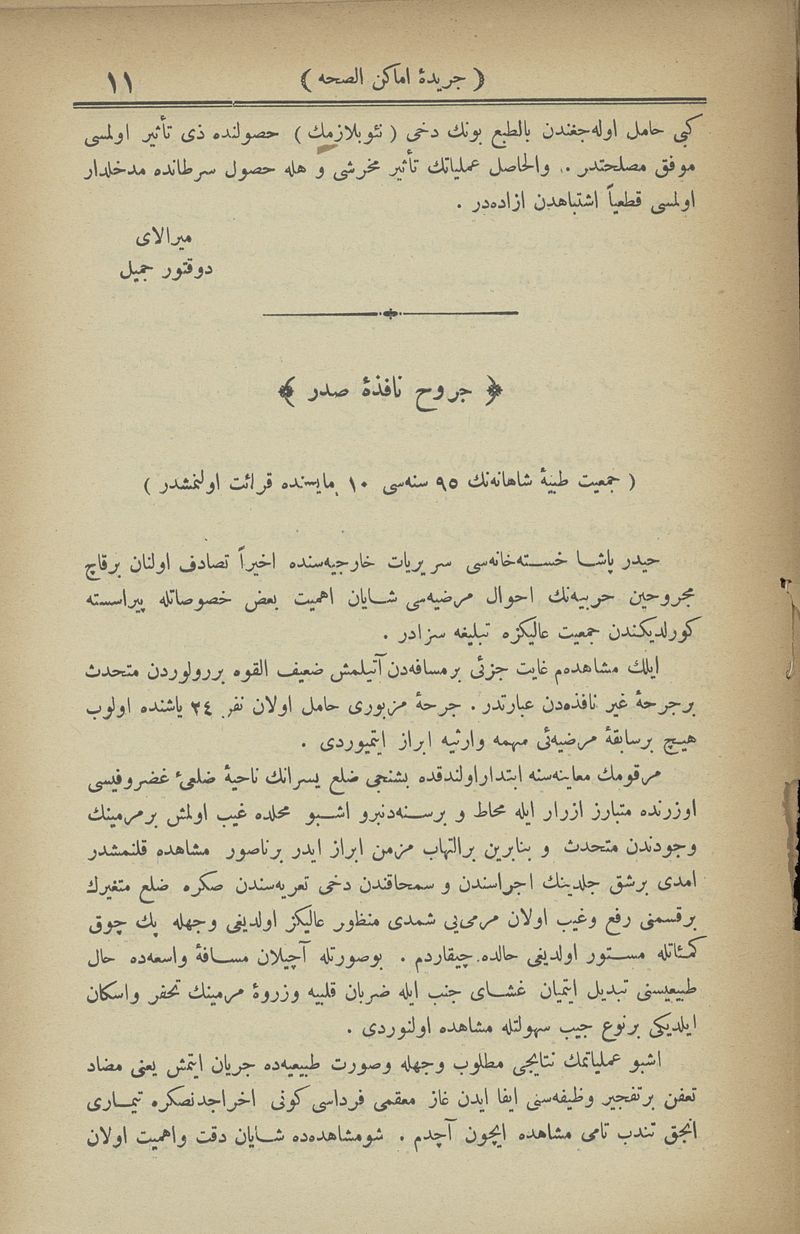 ( جریدهٔ اماکن الصحه ) ١١
کبی حامل اوله‌جغندن بالطبع بونك دخی ( نئوپلازمك ) حصولنده ذی تأثیر اولمسی
موفق مصلحتدر . والحاصل عملیاتك تأثیر مخرشی و هله حصول سرطانده مدخلدار
اولمسی قطعیاً اشتباهدن ازاده‌در .
میرالای
دوقتور جمیل
﴿ جروح نافذهٔ صدر ﴾
( جمعیت طبیهٔ شاهانه‌نك ٩٥ سنه‌سی ١٠ مایسنده قرائت اولنمشدر )
حیدر پاشا خسته‌خانه‌سی سریریات خارجیه‌سنده اخیراً تصادف اولنان برقاچ
مجروحین حربیه‌نك احوال مرضیه‌سی شایان اهمیت بعض خصوصاتله پیراسسته
کورلدیکندن جمعیت عالیکزه تبلیغه سزادر .
ایلك مشاهده‌م غایت جزئی برمسافه‌دن آتیلمش ضعیف القوه بررولوردن متحدث
برجرحهٔ غیر نافذه‌دن عبارتدر . جرحهٔ مزبوری حامل اولان نفر ٢٤ یاشنده اولوب
هیچ برسابقهٔ مرضیه‌ئی مهمه وارثیه ابراز ایتمیوردی .
مرقومك معاینه‌سنه ابتدار اولندقده بشنجی ضلع یسرانك ناحیهٔ ضلعیٔ غضروفیسی
اوزرنده متبارز ازرار ایله محاط و برسنه‌دنبرو اشبو محلده غیب اولمش برمرمینك
وجودندن متحدث و بنابرین برالتهاب مزمن ابراز ایدر برناصور مشاهده قلنمشدر
امدی برشق جلدینك اجراسندن و سمحاقندن دخی تعریه‌سندن صکره ضلع متغیرك
برقسمنی رفع وغیب اولان مرمی‌یی شمدی منظور عالیکز اولدیغی وجهله پك چوق
کمئاتله مستور اولدیغی حالده چیقاردم . بوصورتله آچیلان مسافهٔ واسعه‌ده حال
طبیعیسنی تبدیل ایتمیان غشای جنب ایله ضربان قلبیه وزروهٔ مرمینك تحفر واسکان
ایلدیکی برنوع جیب سهولتله مشاهده اولنوردی .
اشبو عملیاتمك نتایجی مطلوب وجهله وصورت طبیعیه‌ده جریان ایتمش یعنی مضاد
تعفن برتفجیر وظیفه‌سنی ایفا ایدن غاز معقمی فرداسی کونی اخراجدنصکره تیماری
انجق تندب تامی مشاهده ایچون آچدم . شومشاهده‌ده شایان دقت واهمیت اولان